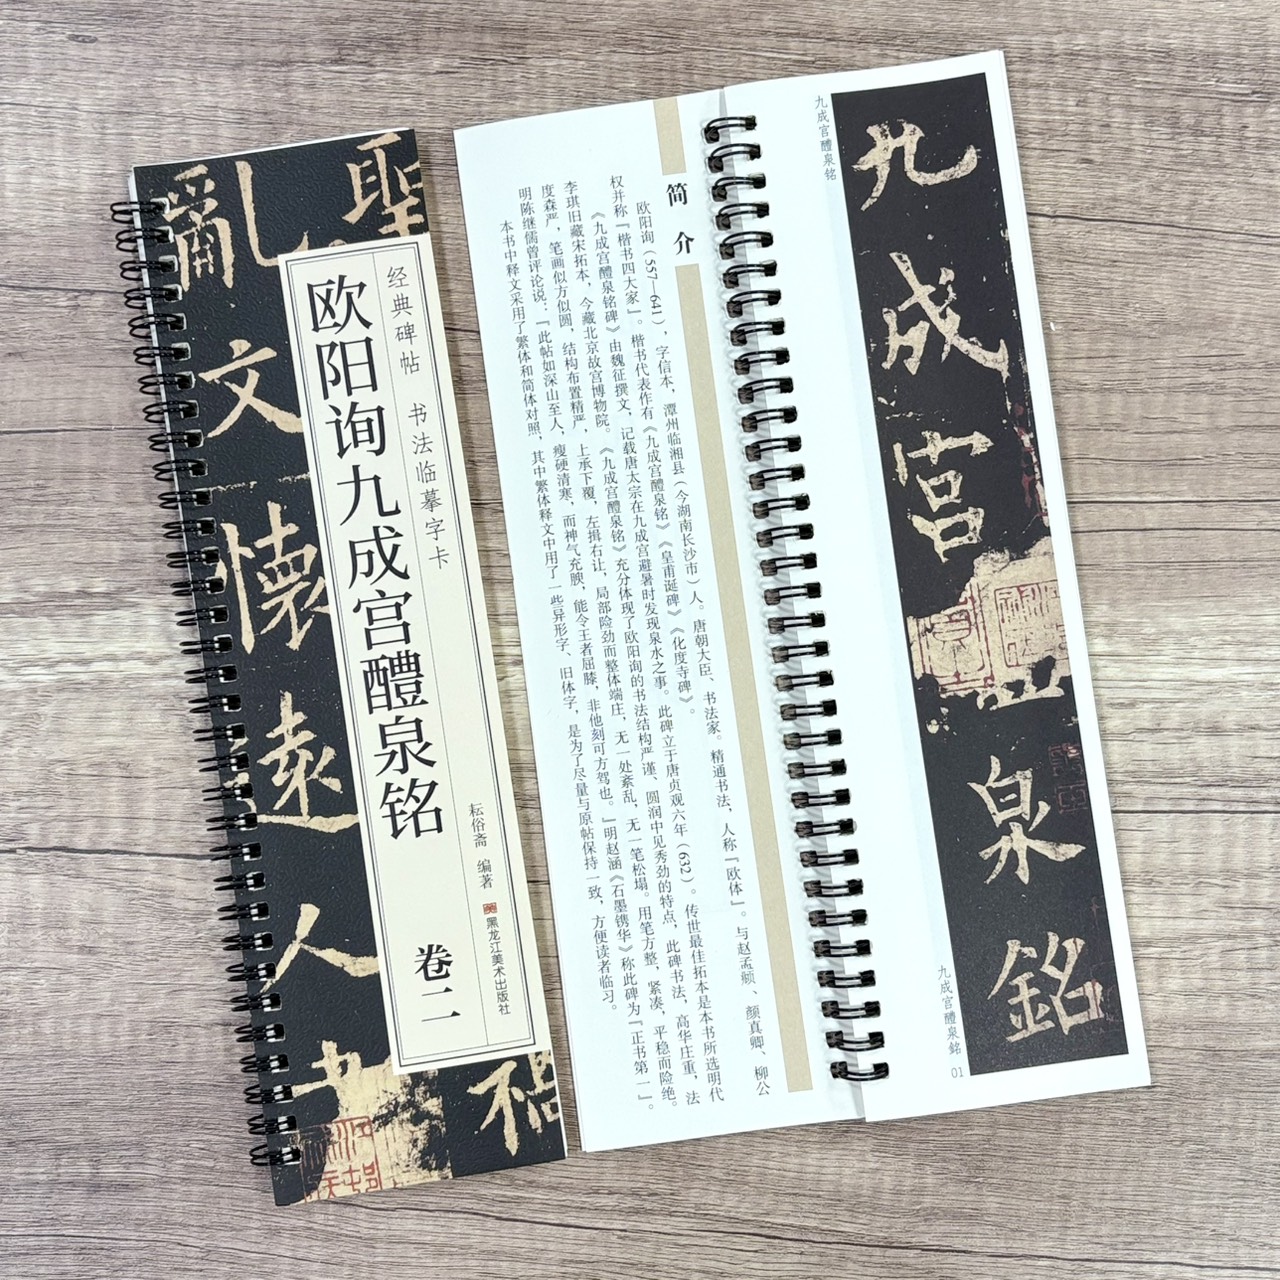 聖
亂
文
懷
遠
人
書
禍
经典碑帖 书法临摹字卡
欧阳询九成宫醴泉铭
卷二
耘俗斋 编著
黑龙江美术出版社
简介
欧阳询（557—641），字信本，潭州临湘县（今湖南长沙市）人。唐朝大臣、书法家。精通书法，人称『欧体』。与赵孟頫、颜真卿、柳公
权并称『楷书四大家』。楷书代表作有《九成宫醴泉铭》《皇甫诞碑》《化度寺碑》。
《九成宫醴泉铭碑》由魏征撰文，记载唐太宗在九成宫避暑时发现泉水之事。此碑立于唐贞观六年（632）。传世最佳拓本是本书所选明代
李琪旧藏宋拓本，今藏北京故宫博物院。《九成宫醴泉铭》充分体现了欧阳询的书法结构严谨、圆润中见秀劲的特点，此碑书法，高华庄重，法
度森严，笔画似方似圆，结构布置精严，上承下覆，左揖右让，局部险劲而整体端庄，无一处紊乱，无一笔松塌。用笔方整，紧凑，平稳而险绝。
明陈继儒曾评论说：『此帖如深山至人，瘦硬清寒，而神气充腴，能令王者屈膝，非他刻可方驾也。』明赵涵《石墨镌华》称此碑为『正书第一』。
本书中释文采用了繁体和简体对照，其中繁体释文中用了一些异形字、旧体字，是为了尽量与原帖保持一致，方便读者临习。
九成宫醴泉铭
九成宮
泉銘
九成宮醴泉銘 01